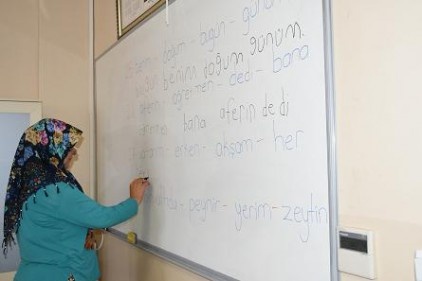 benim - doğum - bugün - günüm
bugün benim doğum günüm.
aferin - öğretmen - dedi - bana
bana aferin dedi
erken - akşam - her
peynir - yerim - zeytin